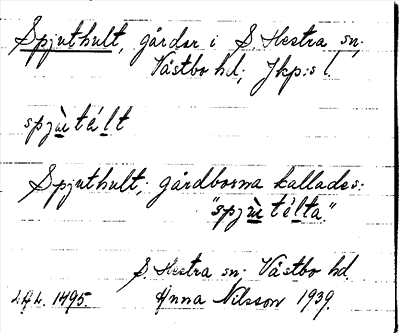 Spjuthult, gårdar i S. Hestra sn;
Västbo hd; Jkp:s l.
spjùtélt
Spjuthult; gårdborna kallades:
"spjùtélta".
S. Hestra sn. Västbo hd.
L.A.L. 1495. Anna Nilsson 1939.